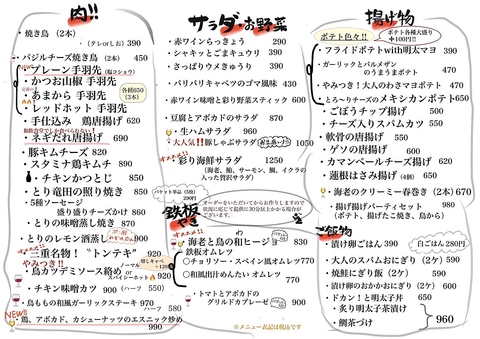 肉!!
・焼き鳥 (2本)
(タレorしお) 390
・バジルチーズ焼き鳥 (2本) 450
・プレーン手羽先(塩コショウ)
・かつお山椒 手羽先
・あまから 手羽先
・レッドホット 手羽先
各種650(3本)
・手仕込み 鶏唐揚げ 620
・ネギだれ唐揚げ 690
・豚キムチーズ 820
・スタミナ鶏キムチ 890
・チキンかつとじ 850
・とり竜田の照り焼き 850
・5種ソーセージ
盛り盛りチーズがけ 860
・とりの味噌勝つ焼き 890
・とりのレモン酒蒸し 900
オススメ!!
三重名物! "トンテキ" 920
やみつき!!
鳥カツデミソース絡め or スパイシーホット 920
・チキン味噌カツ 950 (ハーフ 550)
・鳥ももの和風ガーリックステーキ 970 ハーフ 580
NEW!!
・鶏、アボカド、カシューナッツのエスニック炒め 990
サラダ お野菜
・赤ワインらっきょう 290
・シャキッとごまキュウリ 390
・さっぱりウメきゅうり 390
・パリパリキャベツのゴマ風味 430
・赤ワイン味噌と彩り野菜スティック 600
・豆腐とアボカドのサラダ 870
・生ハムサラダ 980
・大人気!!豚しゃぶサラダ 1050
オススメ!!
・彩り海鮮サラダ 1250
(海老、鮪、サーモン、鯛、イクラの入った贅沢サラダ)
バケット単品 (5枚) 290円
オーダーをいただいてからお作りしますので
状況に応じて提供に30分以上かかる場合がございます。
鉄板やき
・海老と鳥の和ヒージョ 830
鉄板オムレツ
○チョリソー・スペイン風オムレツ 770
○和風出汁めんたい オムレツ 770
・トマトとアボカドの
グリルドカプレーゼ 900
※メニュー表記は税込です
揚げ物
ポテト色々!!
ポテト各種大盛り +100円!!
・フライドポテトwith明太マヨ 390
・ガーリックとパルメザンの
うまうまポテト 490
・やみつき!大人のわさマヨポテト 490
・とろ〜りチーズのメキシカンポテト 650
・ごぼうチップ揚げ 500
・チーズ入りスパムカツ 550
・軟骨の唐揚げ 580
・ゲソの唐揚げ 600
・カマンベールチーズ揚げ 600
・蓮根はさみ揚げ (4個) 650
・海老のクリーミー春巻き (2本) 670
・揚げ揚げパーティーセット 980
(ポテト、揚げたこ焼き、鳥から)
ご飯物
・漬け卵ごはん 390
白ごはん 280円
・大人のスパムおにぎり (2ケ) 590
・焼鮭にぎり飯 (2ケ) 590
・漬け卵のおかかおにぎり (2ケ) 600
・ドカン!と明太子丼 650
・炙り明太子茶漬け
・鯛茶づけ
960